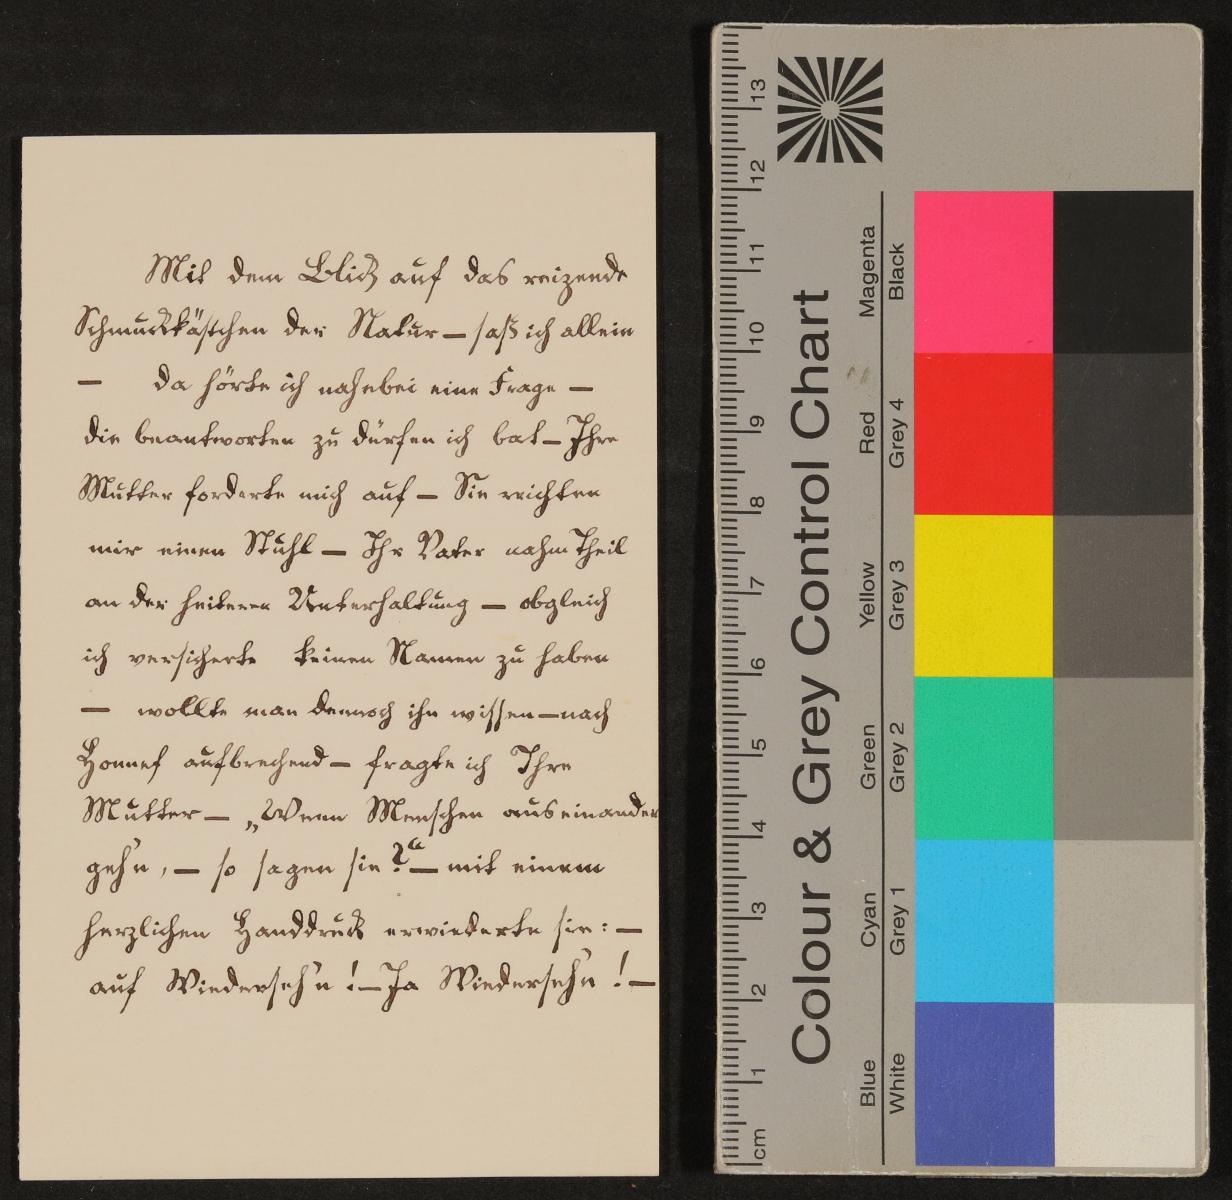 Mit dem Blick auf das reizende
Schmuckkästchen der Natur – saß ich allein
– da hörte ich nahebei eine Frage –
die beantworten zu dürfen ich bat – Ihre
Mutter forderte mich auf – Sie reichten
mir einen Stuhl – Ihr Vater nahm Theil
an der heiteren Unterhaltung – obgleich
ich versicherte keinen Namen zu haben
– wollte man dennoch ihn wissen – nach
Honnef aufbrechend – fragte ich Ihre
Mutter – „Wenn Menschen auseinander
geh'n, – so sagen sie?“ – mit einem
herzlichen Handdruck erwiederte sie: –
auf Wiederseh'n! – Ja Wiederseh'n! –
Colour & Grey Control Chart
Blue Cyan Green Yellow Red Magenta
White Grey 1 Grey 2 Grey 3 Grey 4 Black
cm 1 2 3 4 5 6 7 8 9 10 11 12 13